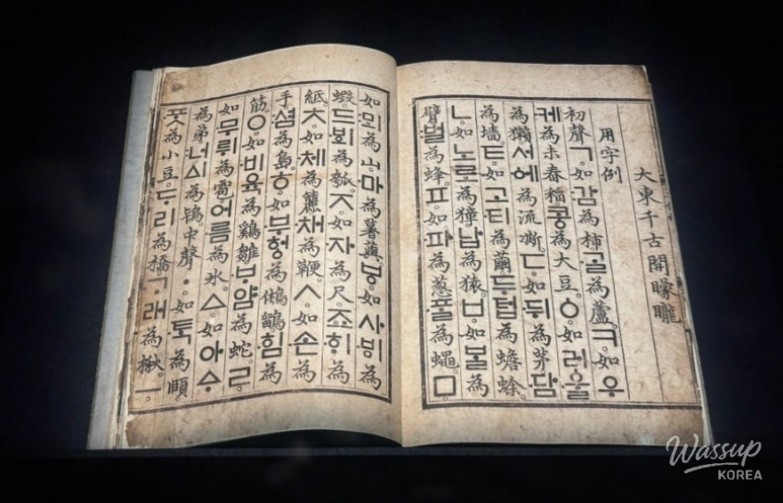 大東千古開矇矓
用字例
初聲ㄱ。如감為柿。ᄀᆞᆯ為蘆。ㅋ。如우
케為未舂稻。콩為大豆。ㆁ。如러ᅌᅮᆯ
為獺。서ᅌᅦ為流凘。ㄷ。如뒤為茅。담
為墻。ㅌ。如고티為繭。두텁為蟾蜍。
ㄴ。如노로為獐。납為猿。ㅂ。如ᄇᆞᆯ為
臂。벌為蜂。ㅍ。如파為葱。ᄑᆞᆯ為蠅。ㅁ。
如뫼為山。마為薯藇。ㅸ。如사ᄫᅵ為
蝦。드ᄫᅴ為瓠。ㅈ。如자為尺。죠ᄒᆡ為
紙。ㅊ。如체為籭。채為鞭。ㅅ。如손為
手。셤為島。ㅎ。如부헝為鵂鶹。힘為
筋。ㅇ。如비육為鷄雛。ᄇᆞ얌為蛇。ㄹ。
如무뤼為雹。어름為氷。ㅿ。如아ᅀᆞ
為弟。너ᅀᅵ為鴇。中聲ㆍ。如ᄐᆞᆨ為頤。
ᄑᆞᆺ為小豆。ᄃᆞ리為橋。ᄀᆞ래為楸。
Wassup
KOREA